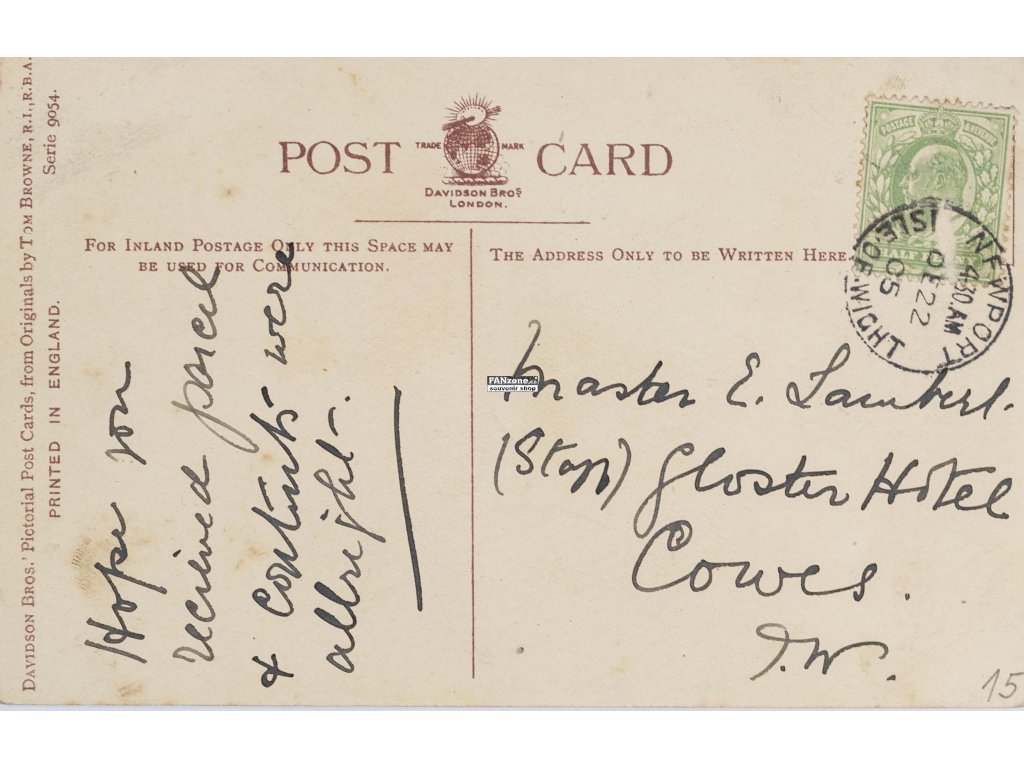 DAVIDSON BROS.' PICTORIAL POST CARDS, FROM ORIGINALS BY TOM BROWNE, R.I., R.B.A.
Serie 9054.
PRINTED IN ENGLAND.
POST CARD
TRADE MARK
DAVIDSON BROS
LONDON.
FOR INLAND POSTAGE ONLY THIS SPACE MAY
BE USED FOR COMMUNICATION.
THE ADDRESS ONLY TO BE WRITTEN HERE
POSTAGE & REVENUE
NEWPORT
ISLE.OF.WIGHT
4.30.AM
DE 22
05
Hope you
received parcel
& contents were
allright.
Master E. Lambert.
(Staff) Gloster Hotel
Cowes.
I.W.
15
FANzone
souvenir shop